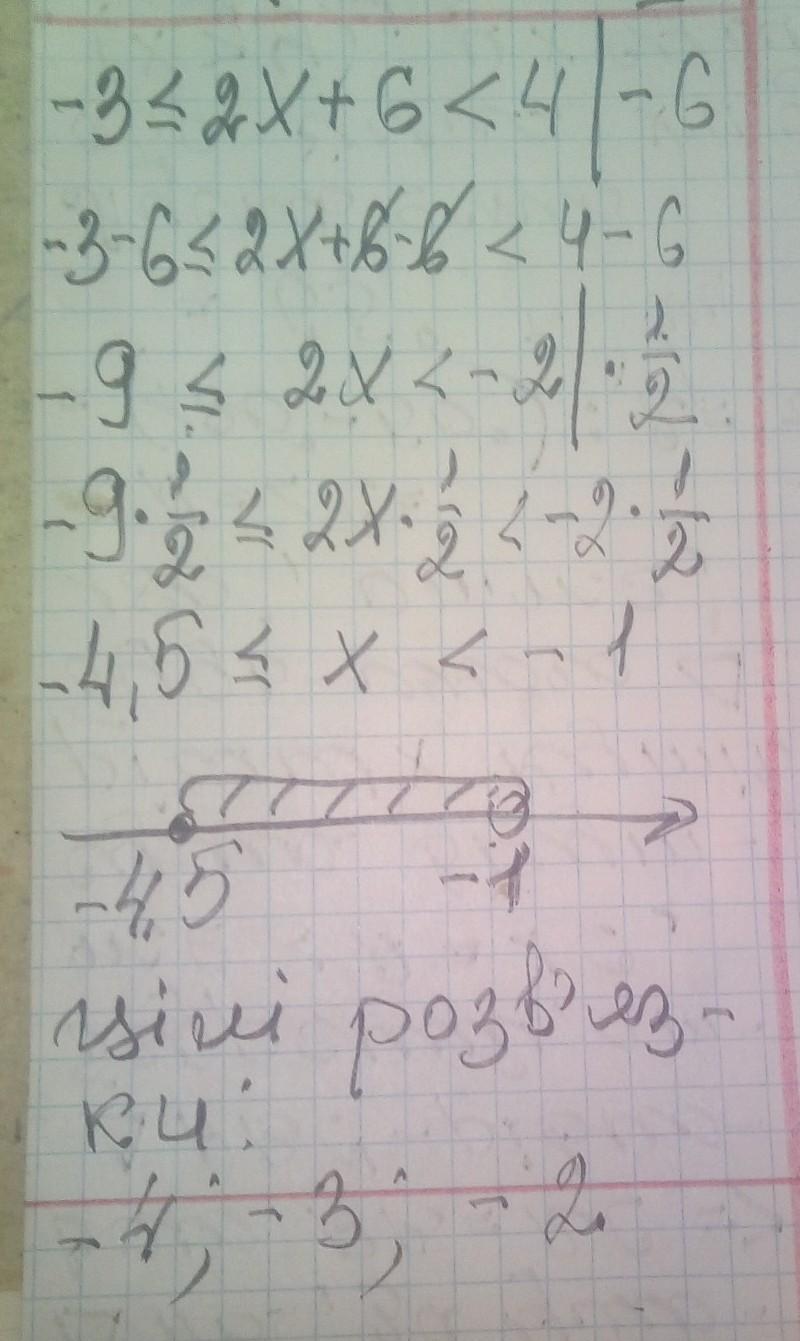 -3 ≤ 2x + 6 < 4 | - 6
-3-6 ≤ 2x+6-6 < 4-6
-9 ≤ 2x < -2 | · 1/2
-9 · 1/2 ≤ 2x · 1/2 < -2 · 1/2
-4,5 ≤ x < -1
-4,5 -1
цілі розв'яз-
ки:
-4; -3; -2